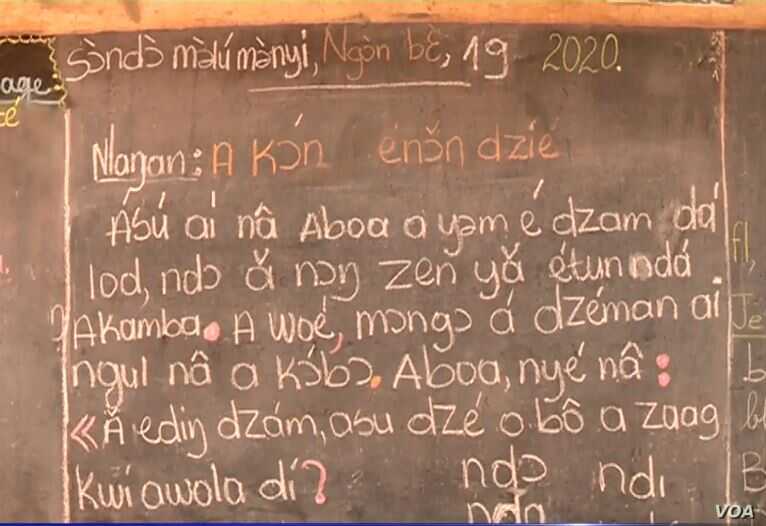 age
Sɔ̀ndɔ̀ mə̀lú mə̀nyi, Ngɔ̀n bɛ̌, 19 2020.
Nlaŋan: A kɔ́n énɔ̌n dzíé
Ású aí nâ Aboa a yəm é dzam dá
lod, ndɔ ǎ nɔŋ zeň yǎ étun ndá
Akamba. A woé, mɔngɔ á dzéman aí
ngul nâ a kɔ́bɔ. Aboa, nyé nâ :
« Ǎ ediŋ dzám, asu dzé o bô a zaag
kwí awola dí? ndɔ ndı
VOA